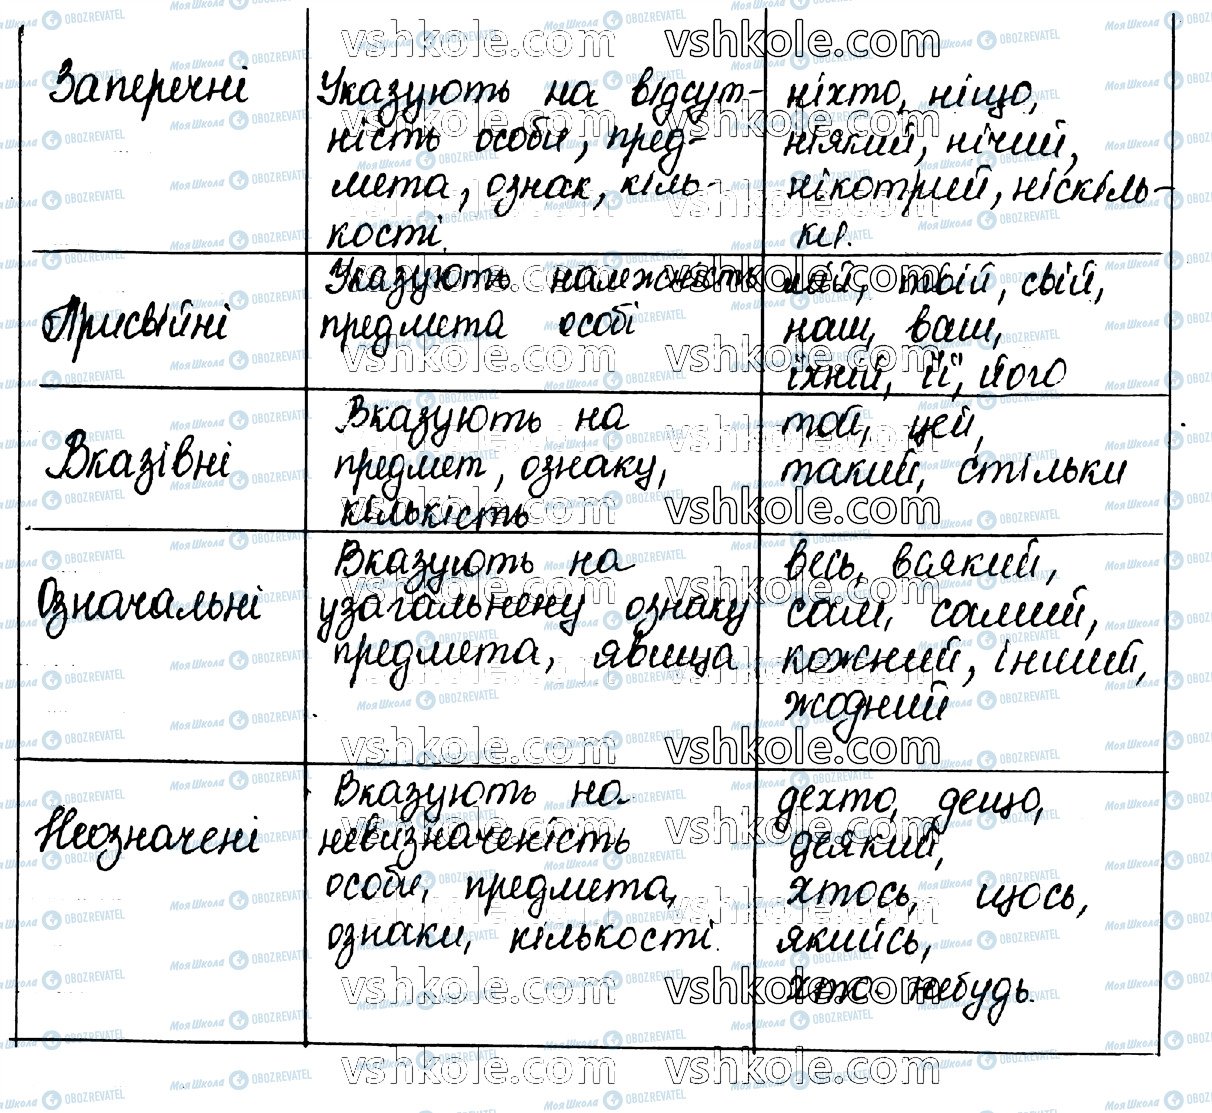 Заперечні
Указують на відсут-
ність особи, пред-
мета, ознак, кіль-
кості.
ніхто, ніщо,
ніякий, нічий,
нікотрий, ніскіль-
ки.
Присвійні
Указують належність
предмета особі
мій, твій, свій,
наш, ваш,
їхній, її, його
Вказівні
Вказують на
предмет, ознаку,
кількість
той, цей,
такий, стільки
Означальні
Вказують на
узагальнену ознаку
предмета, явища
весь, всякий,
сам, самий,
кожний, інший,
жодний
Неозначені
Вказують на
невизначеність
особи, предмета,
ознаки, кількості.
дехто, дещо,
деякий,
хтось, щось,
якийсь,
хто-небудь.